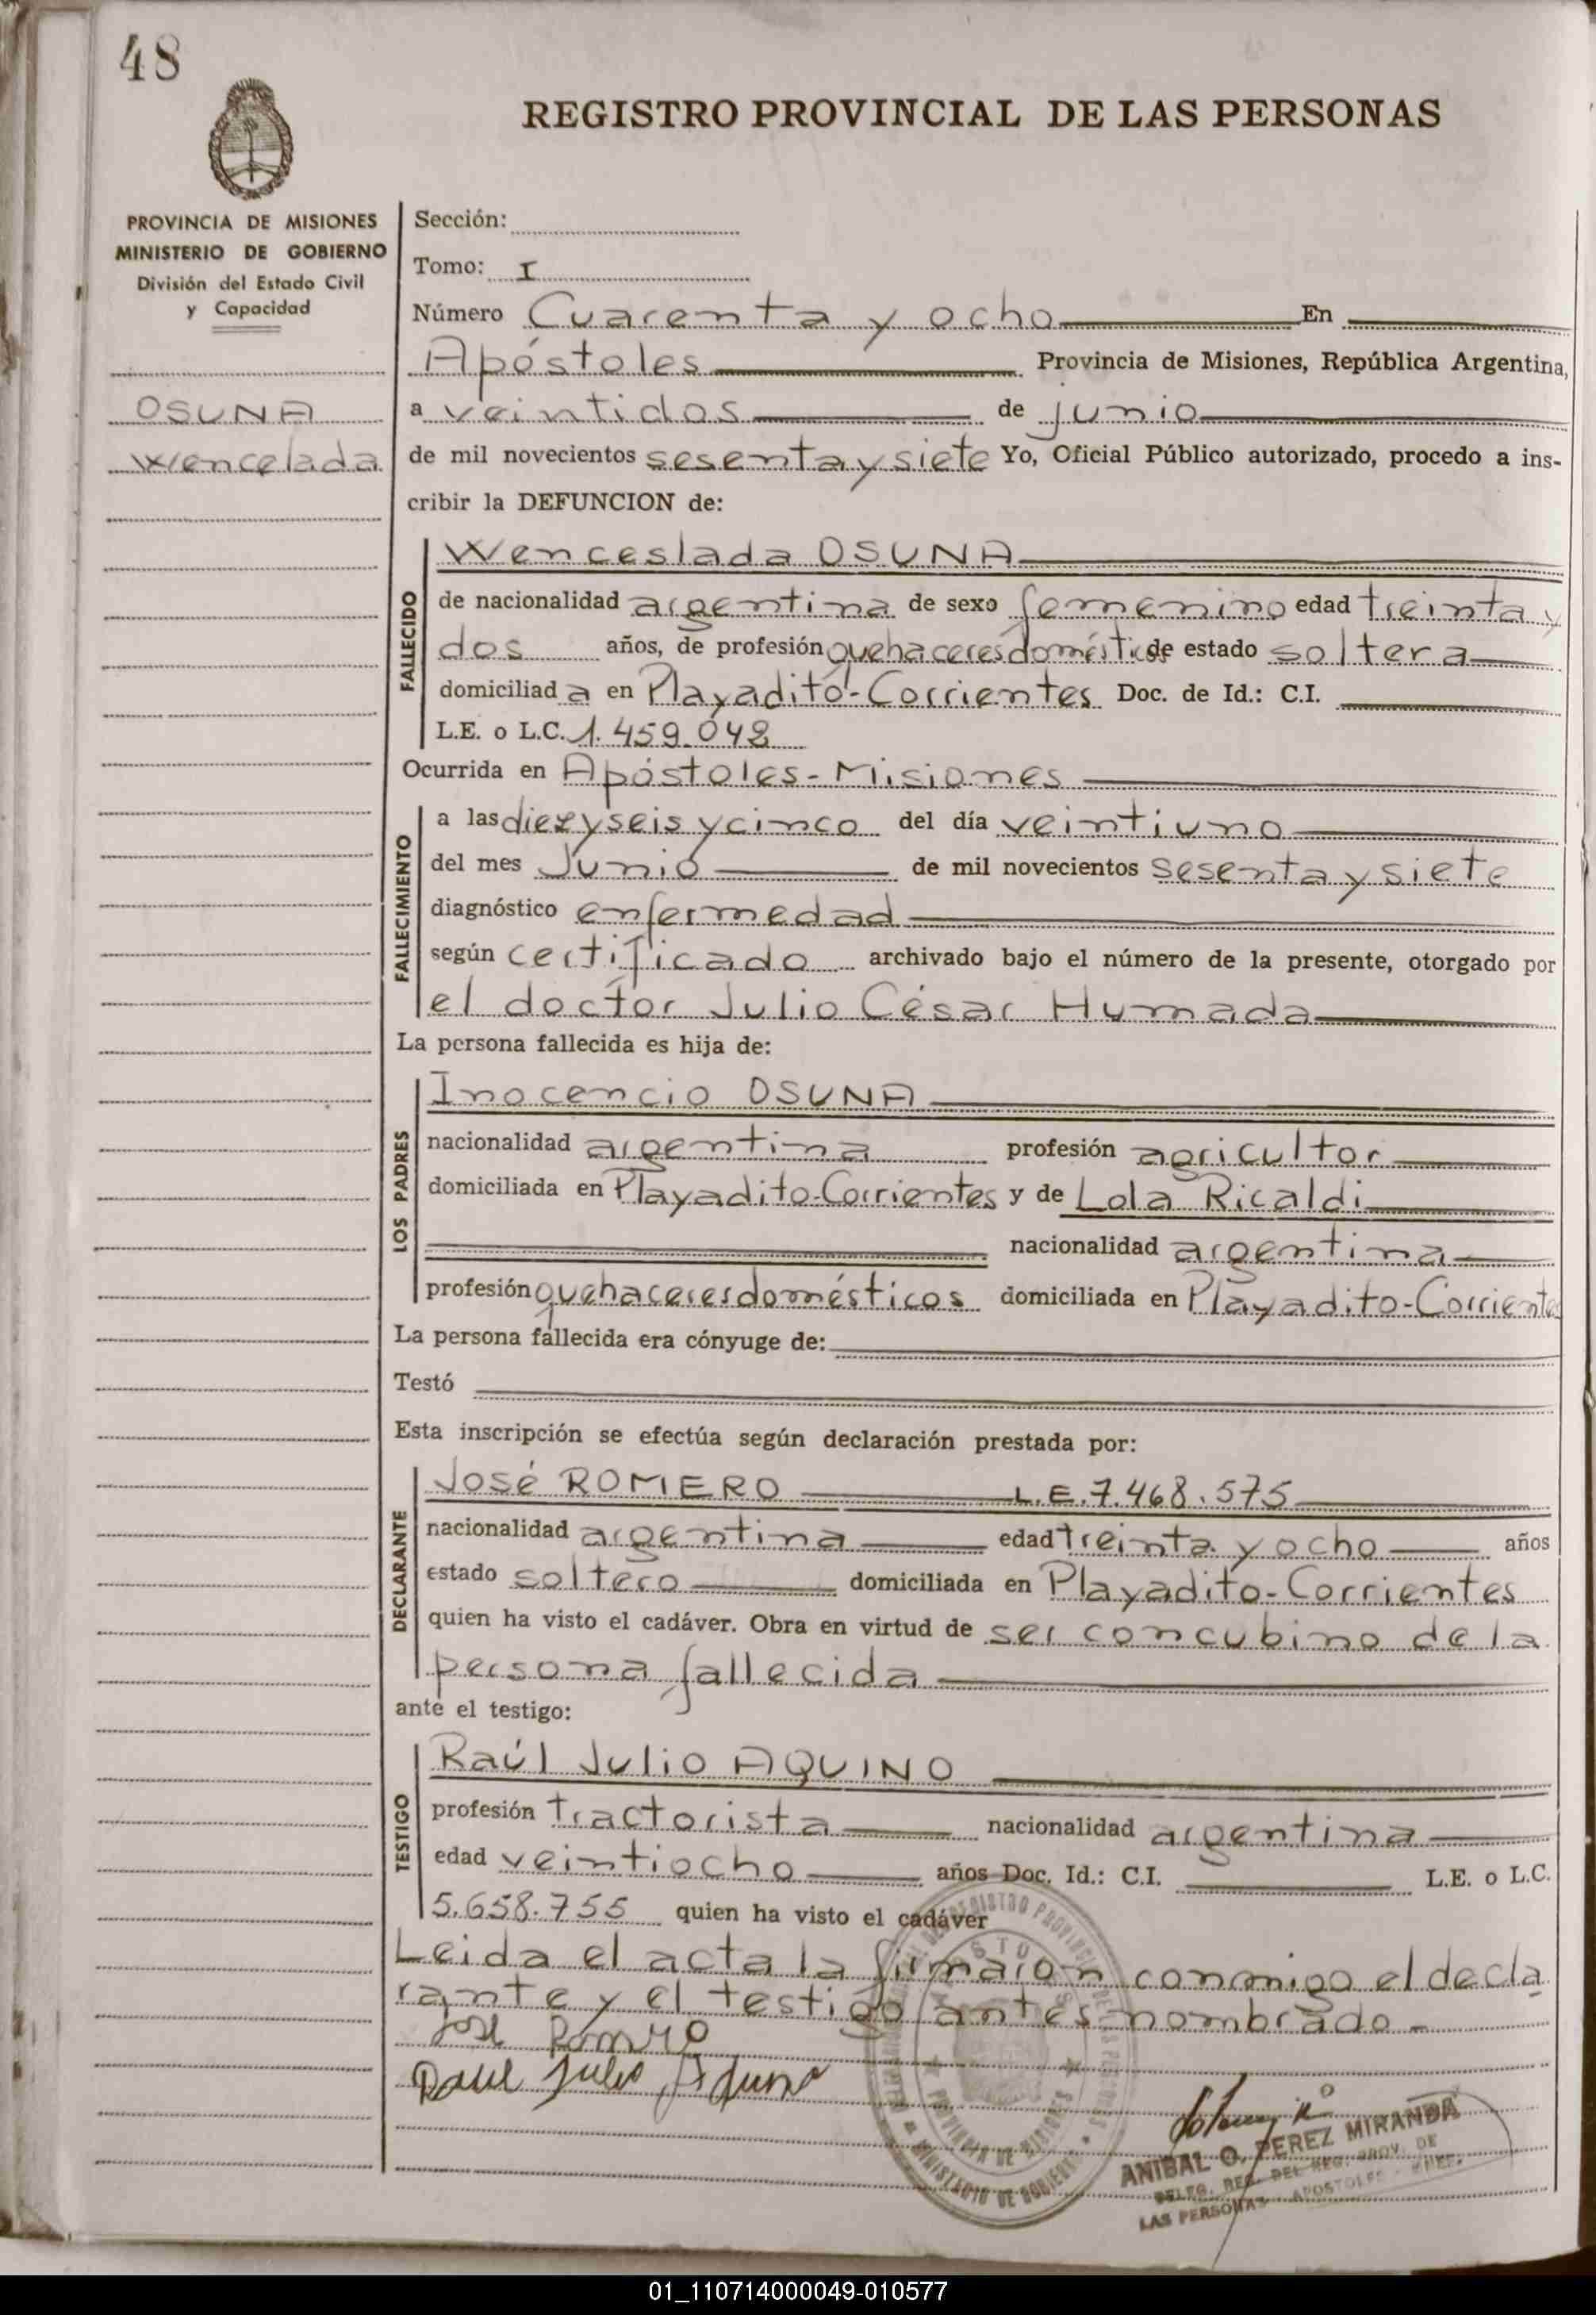 48
REGISTRO PROVINCIAL DE LAS PERSONAS
PROVINCIA DE MISIONES
MINISTERIO DE GOBIERNO
División del Estado Civil
y Capacidad
OSUNA
Wencelada
Sección:
Tomo: I
Número Cuarenta y ocho En
Apóstoles Provincia de Misiones, República Argentina,
a veintidos de junio
de mil novecientos sesenta y siete Yo, Oficial Público autorizado, procedo a ins-
cribir la DEFUNCION de:
FALLECIDO
Wenceslada OSUNA
de nacionalidad argentina de sexo femenino edad treinta y
dos años, de profesión quehaceres domésticos de estado soltera
domiciliad a en Playadito - Corrientes Doc. de Id.: C.I.
L.E. o L.C. 1.459.048
Ocurrida en Apóstoles - Misiones
FALLECIMIENTO
a las diez y seis y cinco del día veintiuno
del mes Junio de mil novecientos sesenta y siete
diagnóstico enfermedad
según certificado archivado bajo el número de la presente, otorgado por
el doctor Julio César Humada
La persona fallecida es hija de:
LOS PADRES
Inocencio OSUNA
nacionalidad argentina profesión agricultor
domiciliada en Playadito-Corrientes y de Lola Ricaldi
nacionalidad argentina
profesión quehaceres domésticos domiciliada en Playadito-Corrientes
La persona fallecida era cónyuge de:
Testó
Esta inscripción se efectúa según declaración prestada por:
DECLARANTE
José ROMERO L.E. 7.468.575
nacionalidad argentina edad treinta y ocho años
estado soltero domiciliada en Playadito-Corrientes
quien ha visto el cadáver. Obra en virtud de ser concubino de la
persona fallecida
ante el testigo:
TESTIGO
Raúl Julio AQUINO
profesión tractorista nacionalidad argentina
edad veintiocho años Doc. Id.: C.I. L.E. o L.C.
5.658.755 quien ha visto el cadáver
Leida el acta la firmaron conmigo el decla
rante y el testigo antes nombrado -
José Romero
Raul Julio Aquino
ANIBAL O. PEREZ MIRANDA
DELEG. REG. DEL REG. PROV. DE
LAS PERSONAS - APOSTOLES -
PROVINCIA DE MISIONES
MINISTERIO DE GOBIERNO
01_110714000049-010577